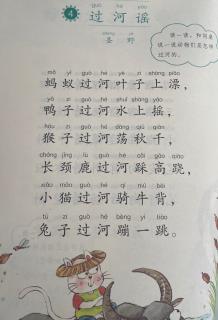 4 guò hé yáo
过河谣
shèng yě
圣野
读一读，和同桌
说一说动物们是怎样
过河的。
mǎ yǐ guò hé yè zi shàng piāo
蚂蚁过河叶子上漂，
yā zi guò hé shuǐ shàng yáo
鸭子过河水上摇，
hóu zi guò hé dàng qiū qiān
猴子过河荡秋千，
cháng jǐng lù guò hé cǎi gāo qiāo
长颈鹿过河踩高跷，
xiǎo māo guò hé qí niú bèi
小猫过河骑牛背，
tù zi guò hé bèng yí tiào
兔子过河蹦一跳。